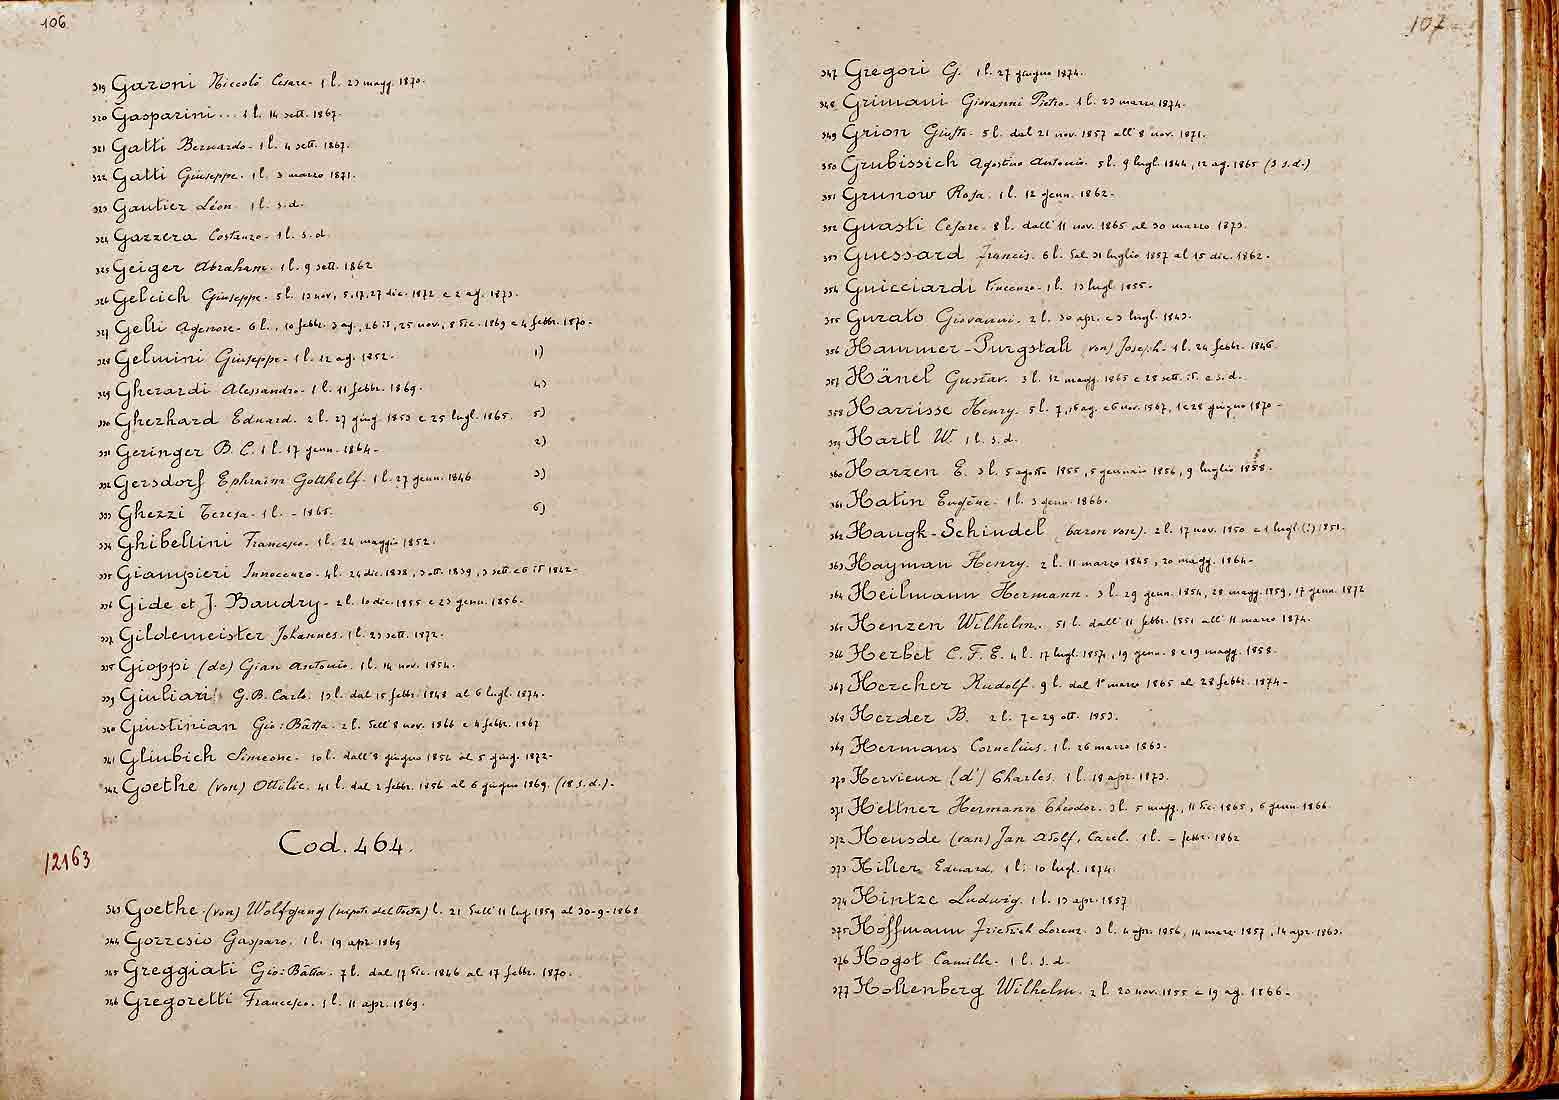 106
319 Garoni Niccolò Cesare - 1 l. 23 magg. 1870.
320 Gasparini ... 1 l. 14 sett. 1867.
321 Gatti Bernardo - 1 l. 4 sett. 1867.
322 Gatti Giuseppe. 1 l. 3 marzo 1871.
323 Gautier Léon. 1 l. s.d.
324 Gazzera Costanzo - 1 l. s.d.
325 Geiger Abraham. 1 l. 9 sett. 1862
326 Gelcich Giuseppe. 5 l. 13 nov., 5, 17, 27 dic. 1872 e 2 ag. 1873.
327 Gelli Agenore - 6 l., 10 febbr. 3 ag., 26 it., 25 nov., 8 dic. 1869 e 4 febbr. 1870.
328 Gelmini Giuseppe - 1 l. 22 ag. 1852. 1)
329 Gherardi Alessandro - 1 l. 11 febbr. 1869. 4)
330 Gherhard Eduard. 2 l. 27 giug. 1853 e 25 lugl. 1865. 5)
331 Geringer B. C. 1 l. 17 genn. 1864. 2)
332 Gersdorf Ephraim Gotthelf. 1 l. 27 genn. 1846 3)
333 Ghezzi Teresa - 1 l. - 1865. 6)
334 Ghibellini Francesco - 1 l. 24 maggio 1852.
335 Giampieri Innocenzo - 4 l. 24 dic. 1838, 3 ott. 1839, 3 sett. e 6 it. 1842.
336 Gide et J. Baudry - 2 l. 10 dic. 1855 e 23 genn. 1856.
337 Gildemeister Johannes. 1 l. 23 sett. 1872.
338 Gioppi (de) Gian Antonio. 1 l. 14 nov. 1854.
339 Giuliari G. B. Carlo. 13 l. dal 15 febbr. 1848 al 6 lugl. 1874.
340 Giustinian Gio: Batta. 2 l. dell'8 nov. 1866 e 4 febbr. 1867
341 Gliubich Simeone. 10 l. dall'8 giugno 1852 al 5 giug. 1872.
342 Goethe (von) Ottilie. 41 l. dal 2 febbr. 1856 al 6 giugno 1869. (18 s.d.).
Cod. 464.
12163
343 Goethe (von) Wolfgang (nipote del Poeta) l. 21 dall'11 lug. 1859 al 30-9-1868
344 Gorresio Gasparo. 1 l. 19 apr. 1869
345 Greggiati Gio: Batta. 7 l. dal 17 dic. 1846 al 17 febbr. 1870.
346 Gregoretti Francesco. 1 l. 11 apr. 1869.
107
347 Gregori G. 1 l. 27 giugno 1874.
348 Grimani Giovanni Pietro. 1 l. 23 marzo 1874.
349 Grion Giusto. 5 l. dal 21 nov. 1857 all'8 nov. 1871.
350 Grubissich Agostino Antonio. 5 l. 9 lugl. 1844, 12 ag. 1865 (3 s.d.)
351 Grunow Rosa. 1 l. 12 genn. 1862.
352 Guasti Cesare. 8 l. dall'11 nov. 1865 al 30 marzo 1873.
353 Guessard Francis. 6 l. dal 31 luglio 1857 al 15 dic. 1862.
354 Guicciardi Vincenzo - 1 l. 13 lugl. 1855.
355 Gurato Giovanni. 2 l. 30 apr. e 3 lugl. 1843.
356 Hammer-Purgstall von) Joseph. 1 l. 24 febbr. 1846.
357 Hänel Gustav. 3 l. 12 magg. 1865 e 28 sett. it. e s.d.
358 Harrisse Henry. 5 l. 7, 16 ag. e 6 nov. 1867, 1 e 28 giugno 1870.
359 Hartl W. 1 l. s.d.
360 Harzen E. 3 l. 5 agosto 1855, 5 gennaio 1856, 9 luglio 1858.
361 Hatin Eugène. 1 l. 3 genn. 1866.
362 Haugk-Schindel (baron von). 2 l. 17 nov. 1850 e 1 lugl. (?) 1851.
363 Hayman Henry. 2 l. 11 marzo 1845, 20 magg. 1864.
364 Heilmann Hermann. 3 l. 29 genn. 1854, 28 magg. 1859, 17 genn. 1872
365 Henzen Wilhelm. 51 l. dall'11 febbr. 1851 all'11 marzo 1874.
366 Herbet C. F. E. 4 l. 17 lugl. 1857, 19 genn. 8 e 19 magg. 1858.
367 Hercher Rudolf. 9 l. dal 1º marzo 1865 al 28 febbr. 1874.
368 Herder B. 2 l. 7 e 29 ott. 1853.
369 Hermans Cornelius. 1 l. 26 marzo 1863.
370 Hervieux (d') Charles. 1 l. 18 apr. 1873.
371 Hettner Hermann Theodor. 3 l. 5 magg., 11 dic. 1865, 6 genn. 1866.
372 Heusde (van) Jan Adolf, Carel. 1 l. - febbr. 1862
373 Hiller Eduard. 1 l. 10 lugl. 1874.
374 Hintze Ludwig. 1 l. 13 apr. 1857
375 Hoffmann Friedrich Lorenz. 3 l. 4 apr. 1856, 14 marz. 1857, 14 apr. 1863.
376 Hogot Camille. 1 l. s.d.
377 Hohenberg Wilhelm. 2 l. 20 nov. 1855 e 19 ag. 1866.